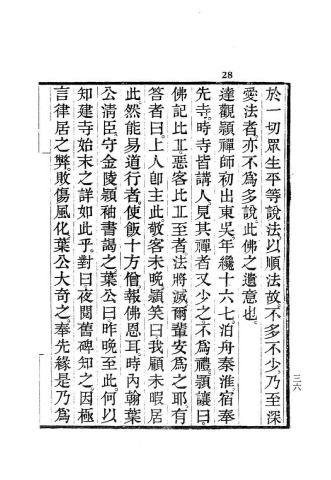 28
於一切眾生平等說法以順法故不多不少乃至深
愛法者亦不為多說此佛之遺意也
達觀頴禪師初出東吳年纔十六七泊舟秦淮宿奉
先寺時寺皆講人見其禪者又少之不為禮頴讓曰
佛記比丘惡客比丘至者法將滅爾輩安為之耶有
答者曰上人卽主此敬客未晚頴笑曰我顧未暇居
此然能易道行者使飯十方僧報佛恩耳時內翰葉
公清臣守金陵頴袖書謁之葉公曰昨晚至此何以
知建寺始末之詳如此乎對曰夜閱舊碑知之因極
言律居之弊敗傷風化葉公大奇之奉先緣是乃為
三六